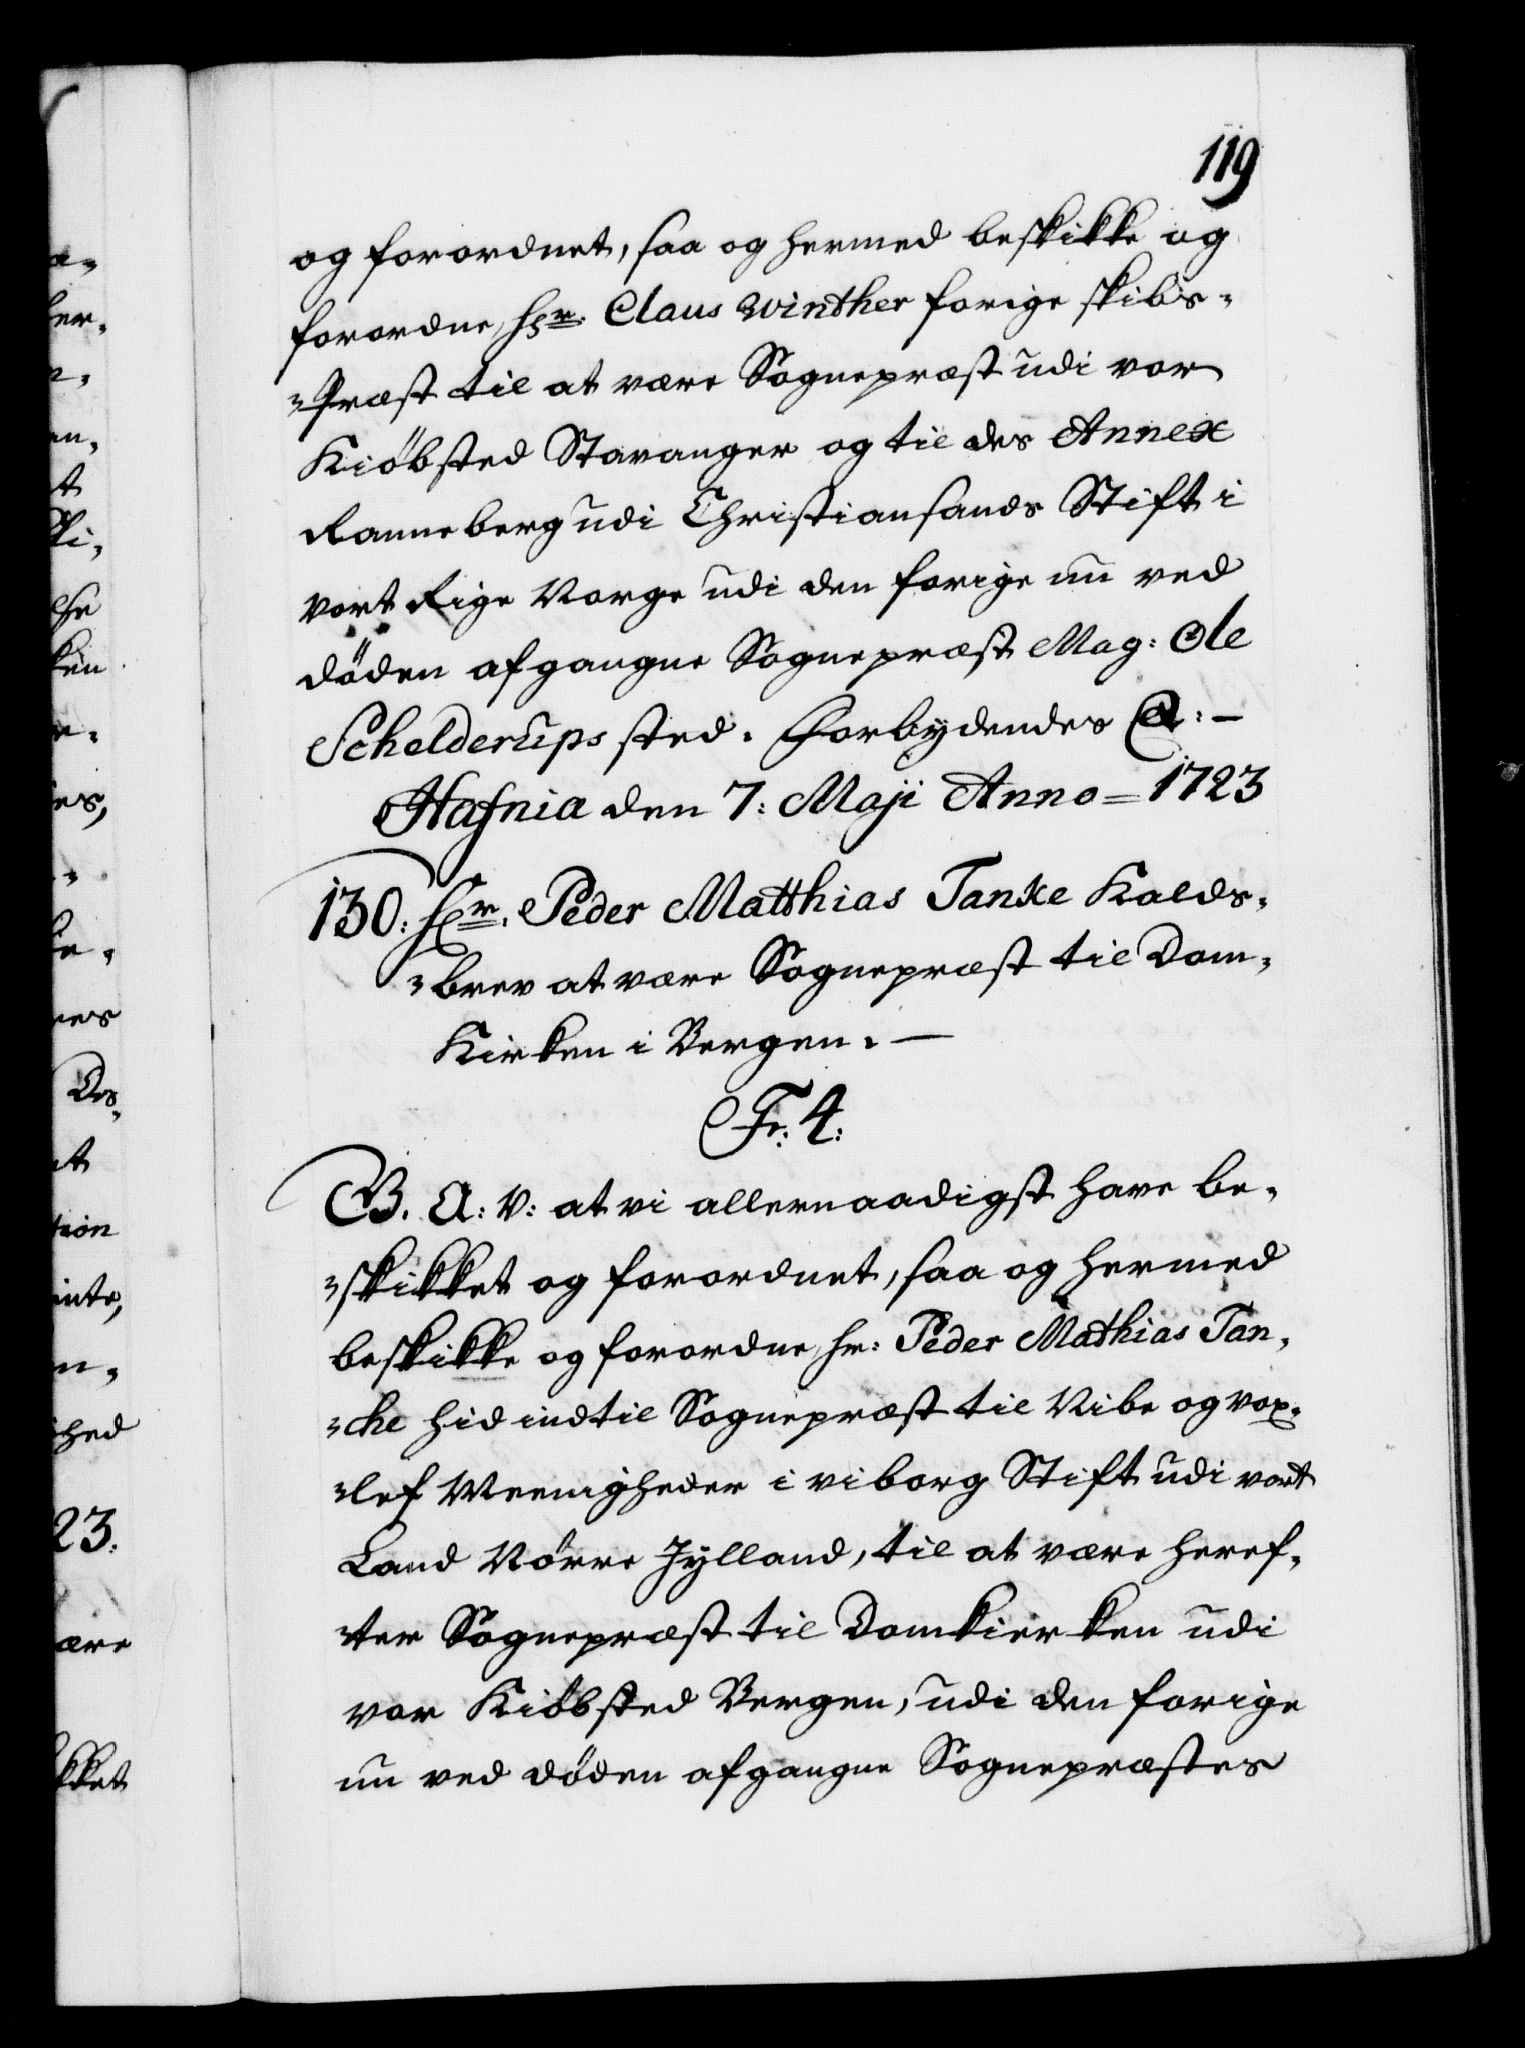 119
og forordnet, saa og hermed beskikke og
forordne, Hr. Claus Winther forige Skibs-
-Præst til at være Sognepræst udi vor
Kiöbsted Stavanger og til des Annex
Ranneberg udi Christiansands Stift i
vort Rige Norge udi den forige nu ved
döden afgangne Sognepræst Mag: Ole
Schelderups sted. Forbydendes &:-
Hafnia den 7: Maji Anno=1723
130: Hr. Peder Matthias Tanke Kalds-
-brev at være Sognepræst til Dom-
Kirken i Bergen.-
Fr: 4:
G. A: V: at vi allernaadigst have be-
-skikket og forordnet, saa og hermed
beskikke og forordne, Hr: Peder Mathias Tan-
-che hid indtil Sognepræst til Vibe og Vox-
-lef Meenigheder i Viborg Stift udi vort
Land Nörre Jylland, til at være heref-
-ter Sognepræst til Domkierken udi
vor Kiöbsted Bergen, udi den forige
nu ved döden afgangne Sognepræstes
a-
er-
n-
t
ken
es,
Des-
tion
inte,
hed
23.
ære
kket